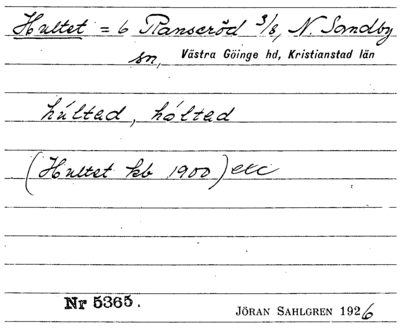 Hultet = 6 Ranseröd 3/8, N. Sandby
sn, Västra Göinge hd, Kristianstad län
húltad, hóltad
(Hultet kb 1900) etc
Nr 5365. JÖRAN SAHLGREN 1926